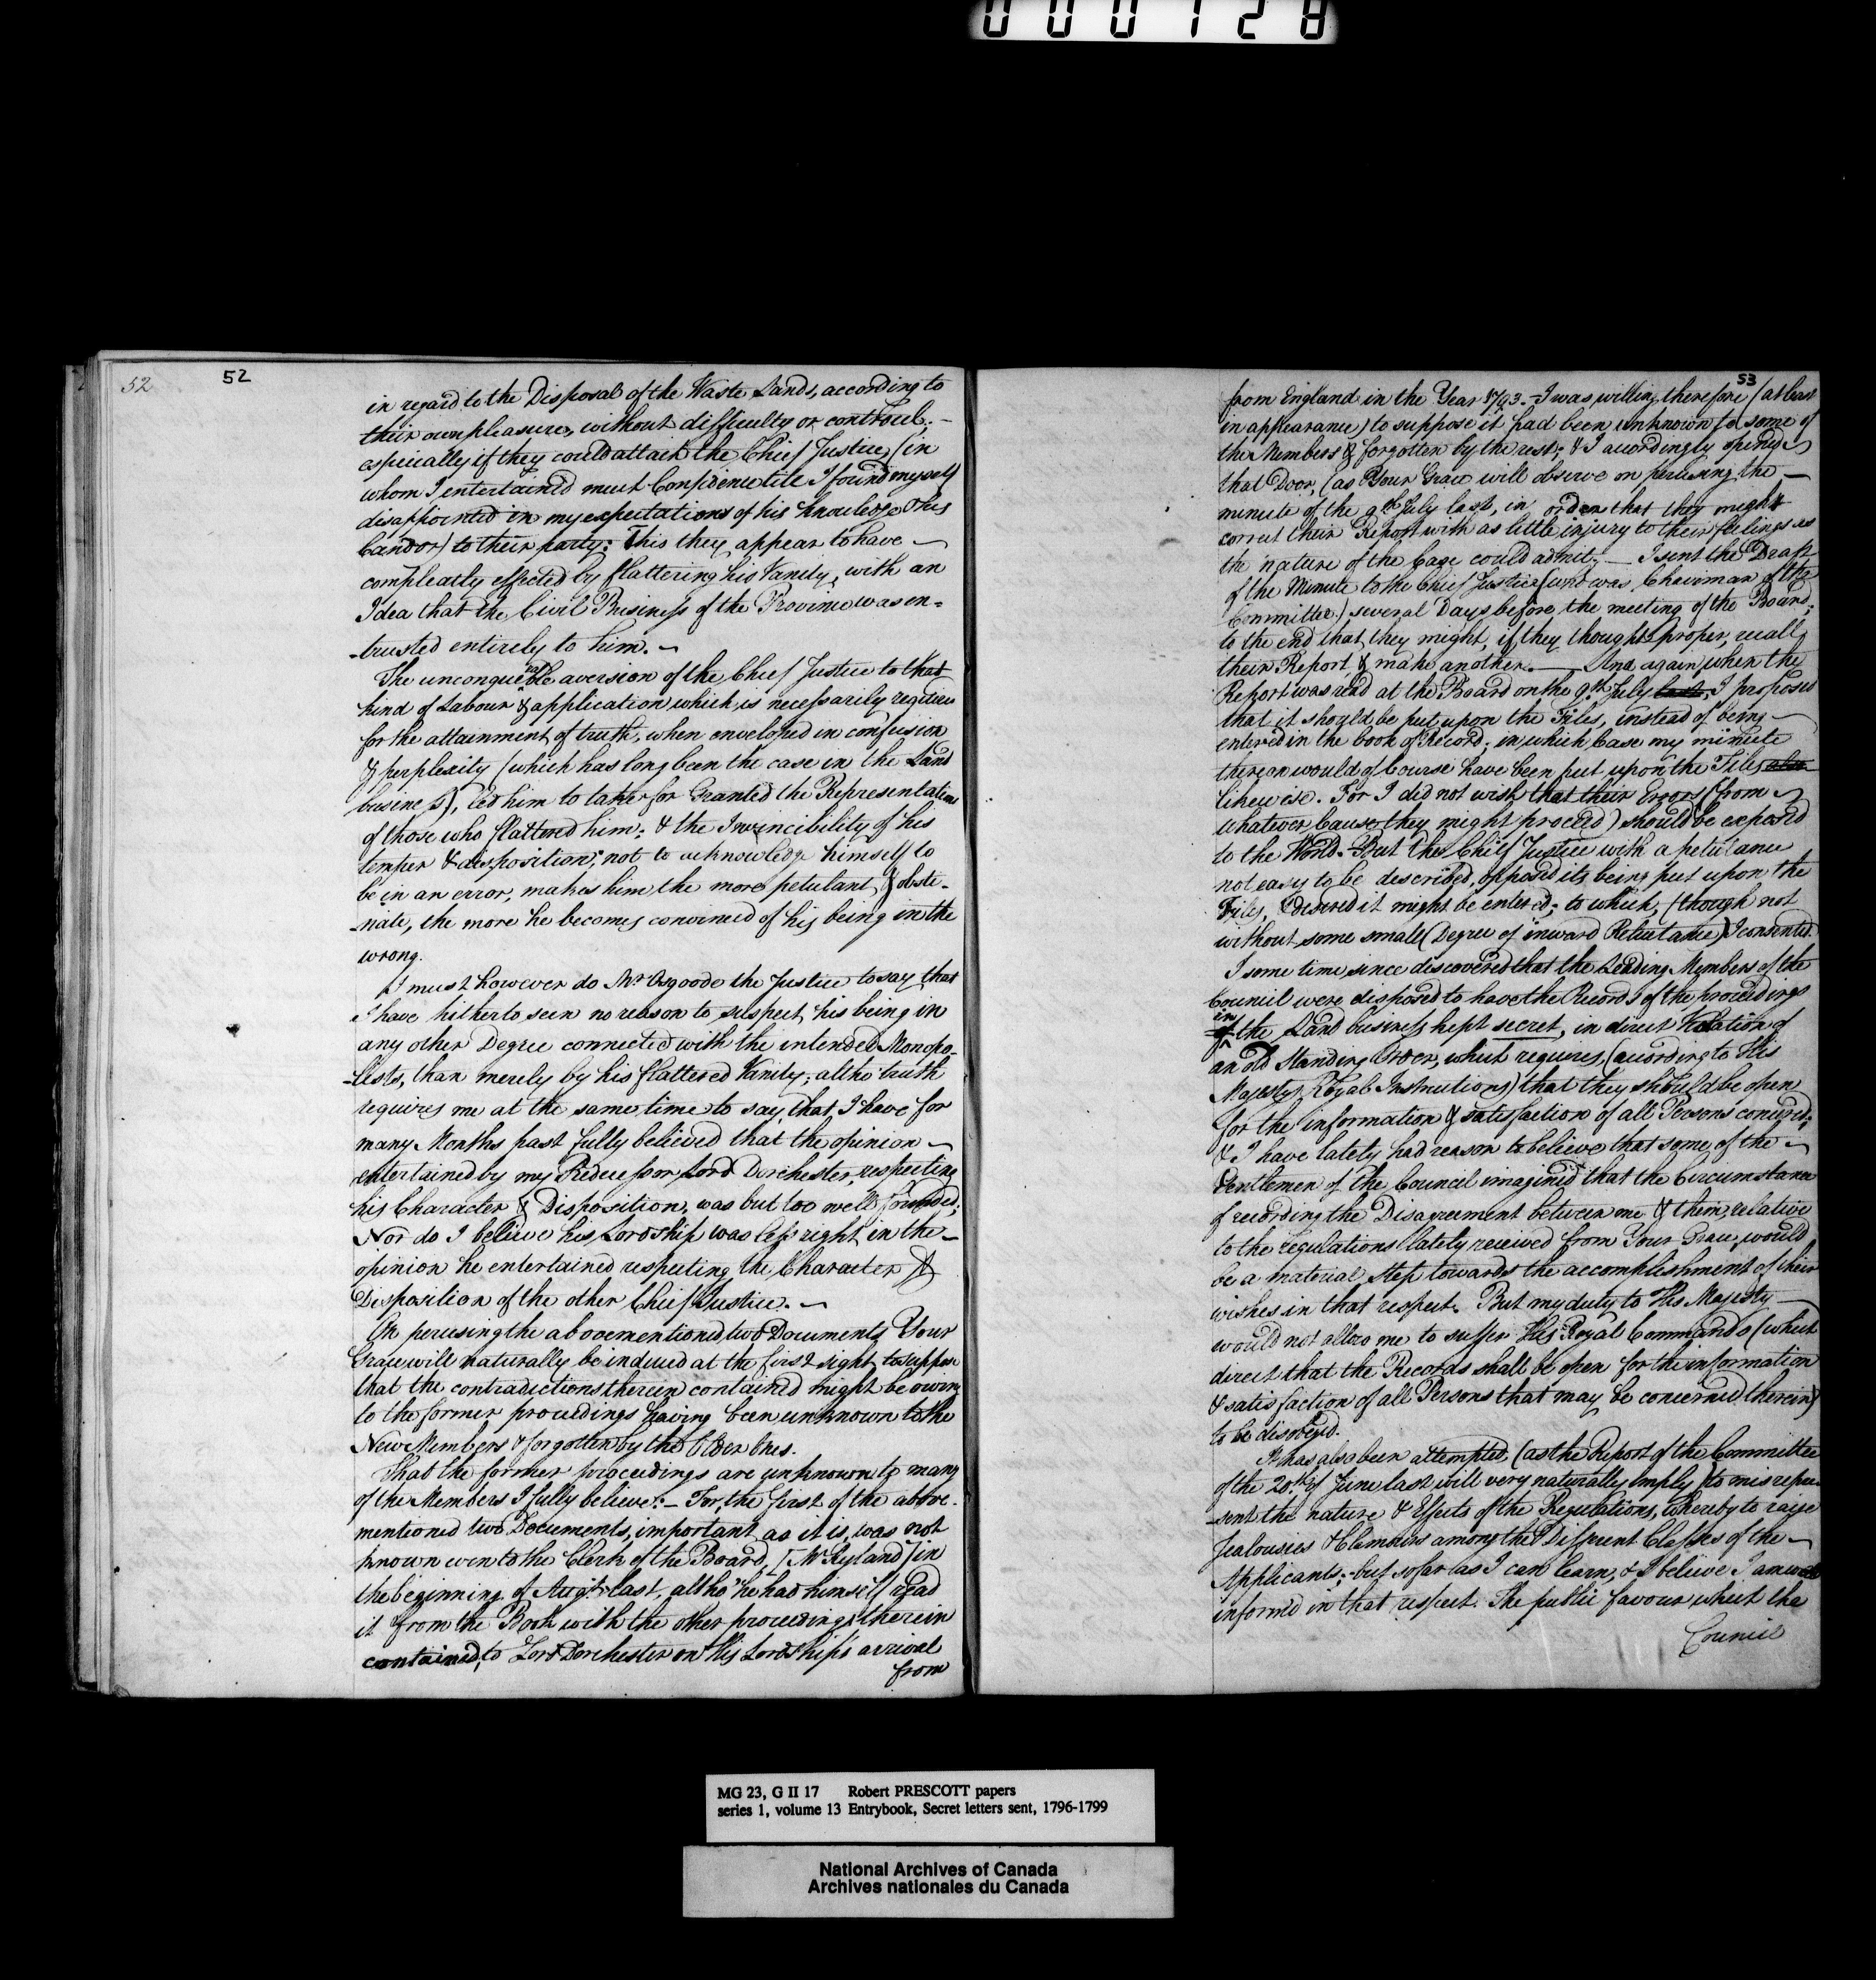 000128
52
52
in regard to the Disposal of the Waste Lands, according to
their own pleasure, without difficulty or controul; –
especially if they could attach the Chief Justice, (in
whom I entertained much Confidence till I found myself
disappointed in my expectations of his Knowledge & his
Candor) to their party: This they appear to have –
compleatly effected by flattering his Vanity, with an
Idea that the Civil Business of the Province was en=
-trusted entirely to him. –
The unconquerable aversion of the Chief Justice to that
kind of Labour & application which is necessarily requisite
for the attainment of truth, when enveloped in confusion
& perplexity (which has long been the case in the Land
business), led him to take for Granted the Representations
of those who flattered him; & the Invincibility of his
temper & disposition, not to acknowledge himself to
be in an error, makes him the more petulant & obsti-
-nate, the more he becomes convinced of his being in the
wrong.
I must however do Mr Osgoode the Justice to say that
I have hitherto seen no reason to suspect his being in
any other Degree connected with the intended Monopo-
-lists, than merely by his flattered Vanity; altho' truth
requires me at the same time to say that, I have for
many Months past fully believed that the opinion –
entertained by my Predecessor Lord Dorchester, respecting
his Character & Disposition, was but too well founded;
Nor do I believe his Lordship was less right in the –
opinion he entertained respecting the Character &
Disposition of the other Chief Justice. –
On perusing the abovementioned two Documents Your
Grace will naturally be induced at the first sight to suppose
that the contradictions therein contained might be owing
to the former proceedings having been unknown to the
New Members & forgotten by the Older Ones.
That the former proceedings are unknown to many
of the Members I fully believe: – For, the first of the above-
mentioned two Documents, important as it is, was not
known even to the Clerk of the Board, (Mr Ryland) in
the beginning of Augt last, altho' he had himself read
it from the Book with the other proceedings therein
contained, to Lord Dorchester on His Lordship's arrival
from
53
from England in the Year 1793. – I was willing therefore (at least
in appearance) to suppose it had been unknown to some of
the Members & forgotten by the rest; & I accordingly opened
that Door, (as Your Grace will observe on perusing the –
minute of the 9th July last, in order that they might
correct their Report with as little injury to their feelings as
the nature of the Case could admit. – I sent the Draft
of the Minute to the Chief Justice (who was Chairman of the
Committee) several Days before the meeting of the Board;
to the end that they might, if they thought proper, recall
their Report & make another. – And again, when the
Report was read at the Board on the 9th July last, I proposed
that it should be put upon the Files, instead of being –
entered in the book of Record; in which Case my minute
thereon would of Course have been put upon the Files also
likewise. For I did not wish that their Errors (from
whatever Cause they might proceed) should be exposed
to the World. But the Chief Justice with a petulance
not easy to be described, opposed its being put upon the
Files, & desired it might be entered; to which, (though not
without some small Degree of inward Reluctance) I consented.
I some time since discovered that the Leading Members of the
Council were disposed to have the Records of the proceedings
in
of the Land business kept secret, in direct Violation of
an old Standing Order, which requires, (according to His
Majesty's Royal Instructions) that they should be open
for the information & satisfaction of all Persons concerned;
& I have lately had reason to believe that some of the –
Gentlemen of the Council imagined that the Circumstance
of recording the Disagreement between me & them, relative
to the regulations lately received from Your Grace, would
be a material step towards the accomplishment of their
wishes in that respect. But my duty to His Majesty –
would not allow me to suffer His Royal Commands (which
direct that the Records shall be open for the information
& satisfaction of all Persons that may be concerned therein)
to be disobeyed.
It has also been attempted (as the Report of the Committee
of the 20th of June last will very naturally imply) to misrepre-
-sent the nature & Effects of the Regulations, whereby to raise
Jealousies & Clamours among the Different Classes of the –
Applicants; but so far as I can learn, & I believe I am well
informed in that respect. The public favour which the
Council
MG 23, G II 17 Robert PRESCOTT papers
series 1, volume 13 Entrybook, Secret letters sent, 1796-1799
National Archives of Canada
Archives nationales du Canada